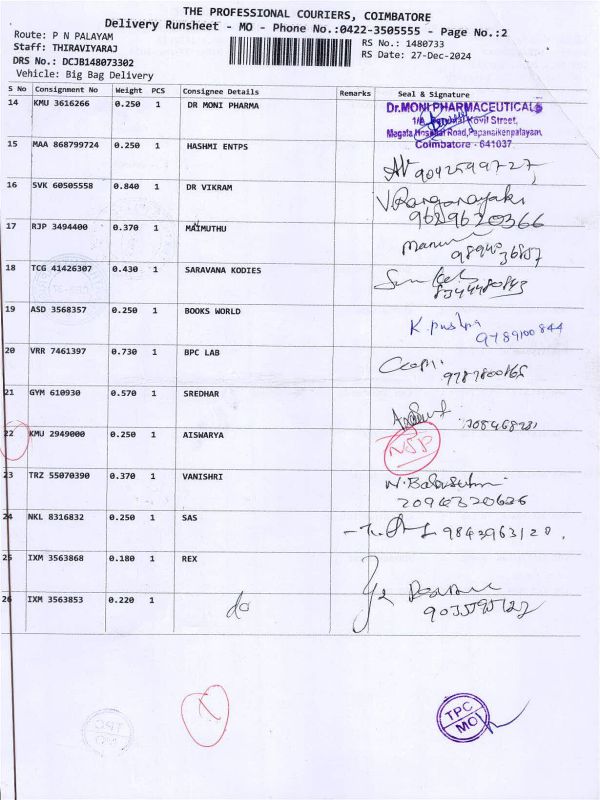 THE PROFESSIONAL COURIERS, COIMBATORE
Delivery Runsheet - MO - Phone No.:0422-3505555 - Page No.:2
Route: P N PALAYAM
Staff: THIRAVIYARAJ
RS No.: 1480733
DRS No.: DCJB148073302
RS Date: 27-Dec-2024
Vehicle: Big Bag Delivery
S No Consignment No Weight PCS Consignee Details Remarks Seal & Signature
14 KMU 3616266 0.250 1 DR MONI PHARMA
Dr.MONI PHARMACEUTICALS
Kovil Street,
Hospital Road, Papanaikenpalayam,
Coimbatore - 641037
15 MAA 868799724 0.250 1 HASHMI ENTPS
9042599727
16 SVK 60505558 0.840 1 DR VIKRAM
V. Ranganayaki
9689620366
17 RJP 3494400 0.370 1 MAIMUTHU
18 TCG 41426307 0.430 1 SARAVANA KODIES
19 ASD 3568357 0.250 1 BOOKS WORLD K. pushpa
9789100844
20 VRR 7461397 0.730 1 BPC LAB
9787800865
21 GYM 610930 0.570 1 SREDHAR
22 KMU 2949000 0.250 1 AISWARYA NSP
23 TRZ 55070390 0.370 1 VANISHRI
24 NKL 8316832 0.250 1 SAS 9843963120.
25 IXM 3563868 0.180 1 REX
26 IXM 3563853 0.220 1 do
TPC
MO
TPC